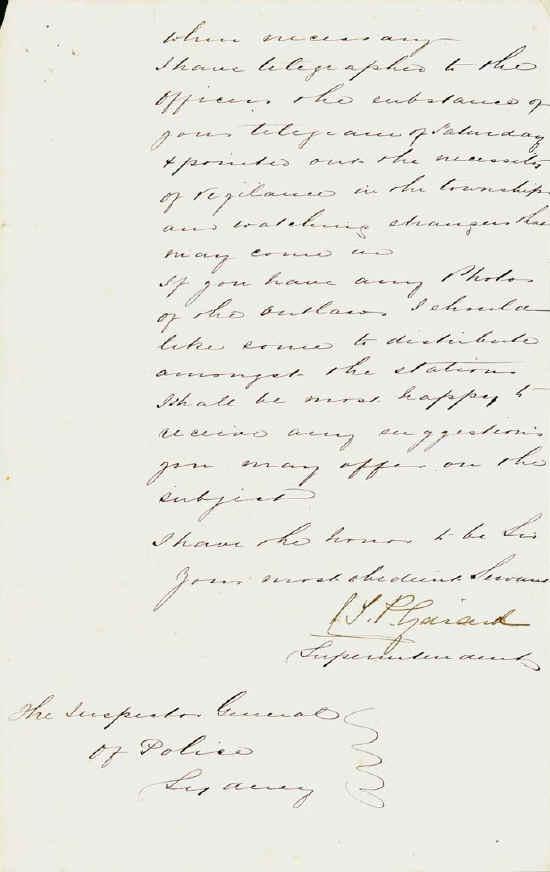 when necessary
I have telegraphed to the
Officers the substance of
your telegram of Saturday
& pointed out the necessity
of vigilance in the township
and watching strangers that
may come in
If you have any Photos
of the outlaws I should
like some to distribute
amongst the stations
I shall be most happy to
receive any suggestions
you may offer on the
subject
I have the honor to be Sir
Your most obedient Servant
Superintendent
The Inspector General
of Police
Sydney